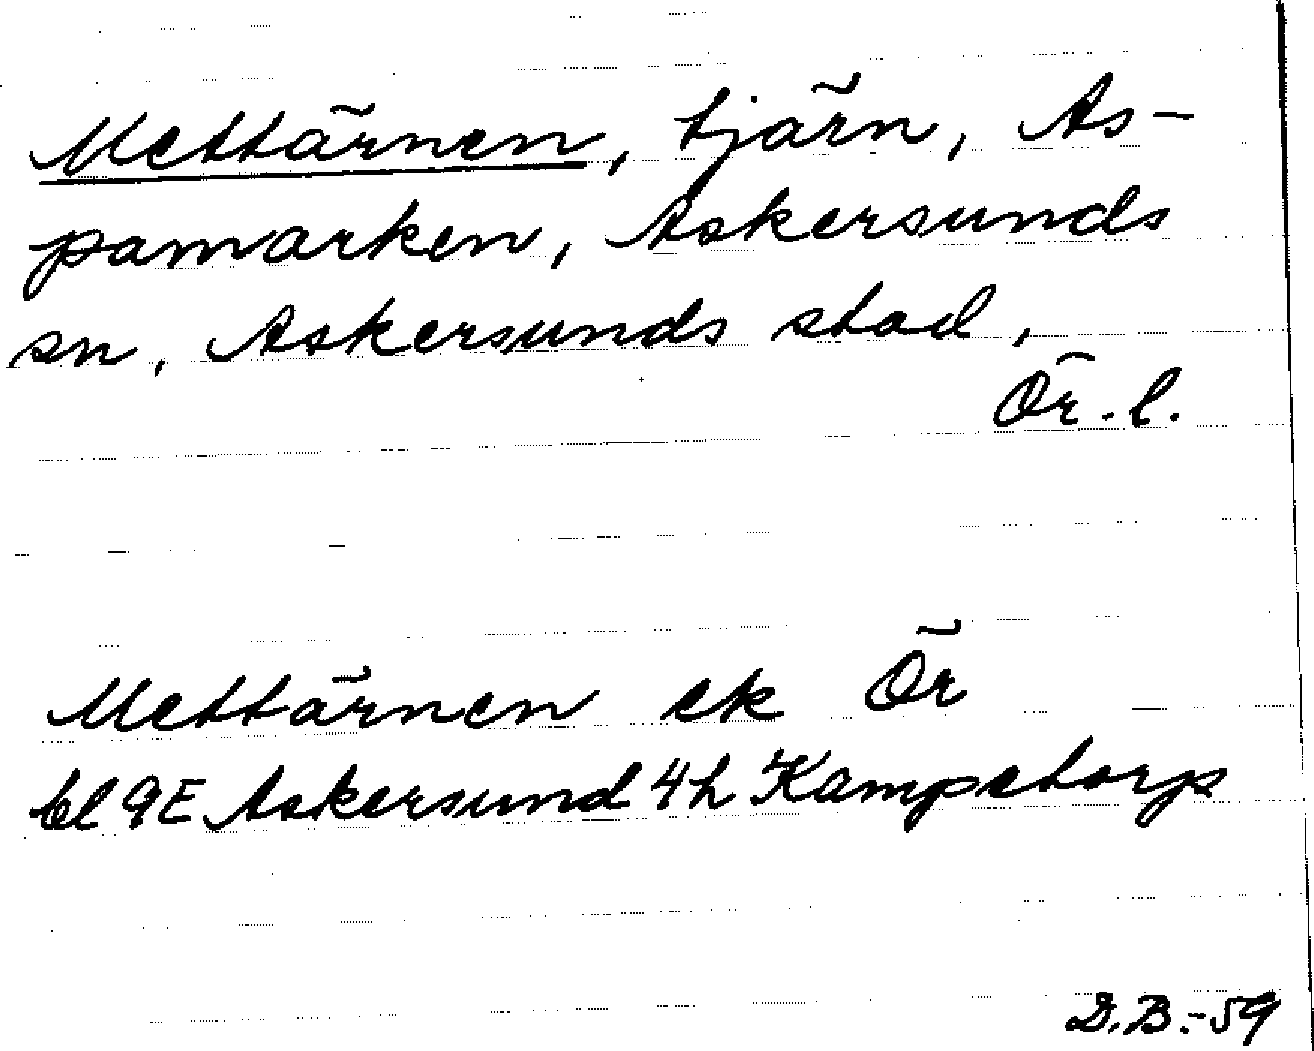 Mettärnen, tjärn, As-
pamarken, Askersunds
sn, Askersunds stad,
Ör. l.
Mettärnen ek Ör
bl 9E Askersund 4h Kampetorp
D.B.-59